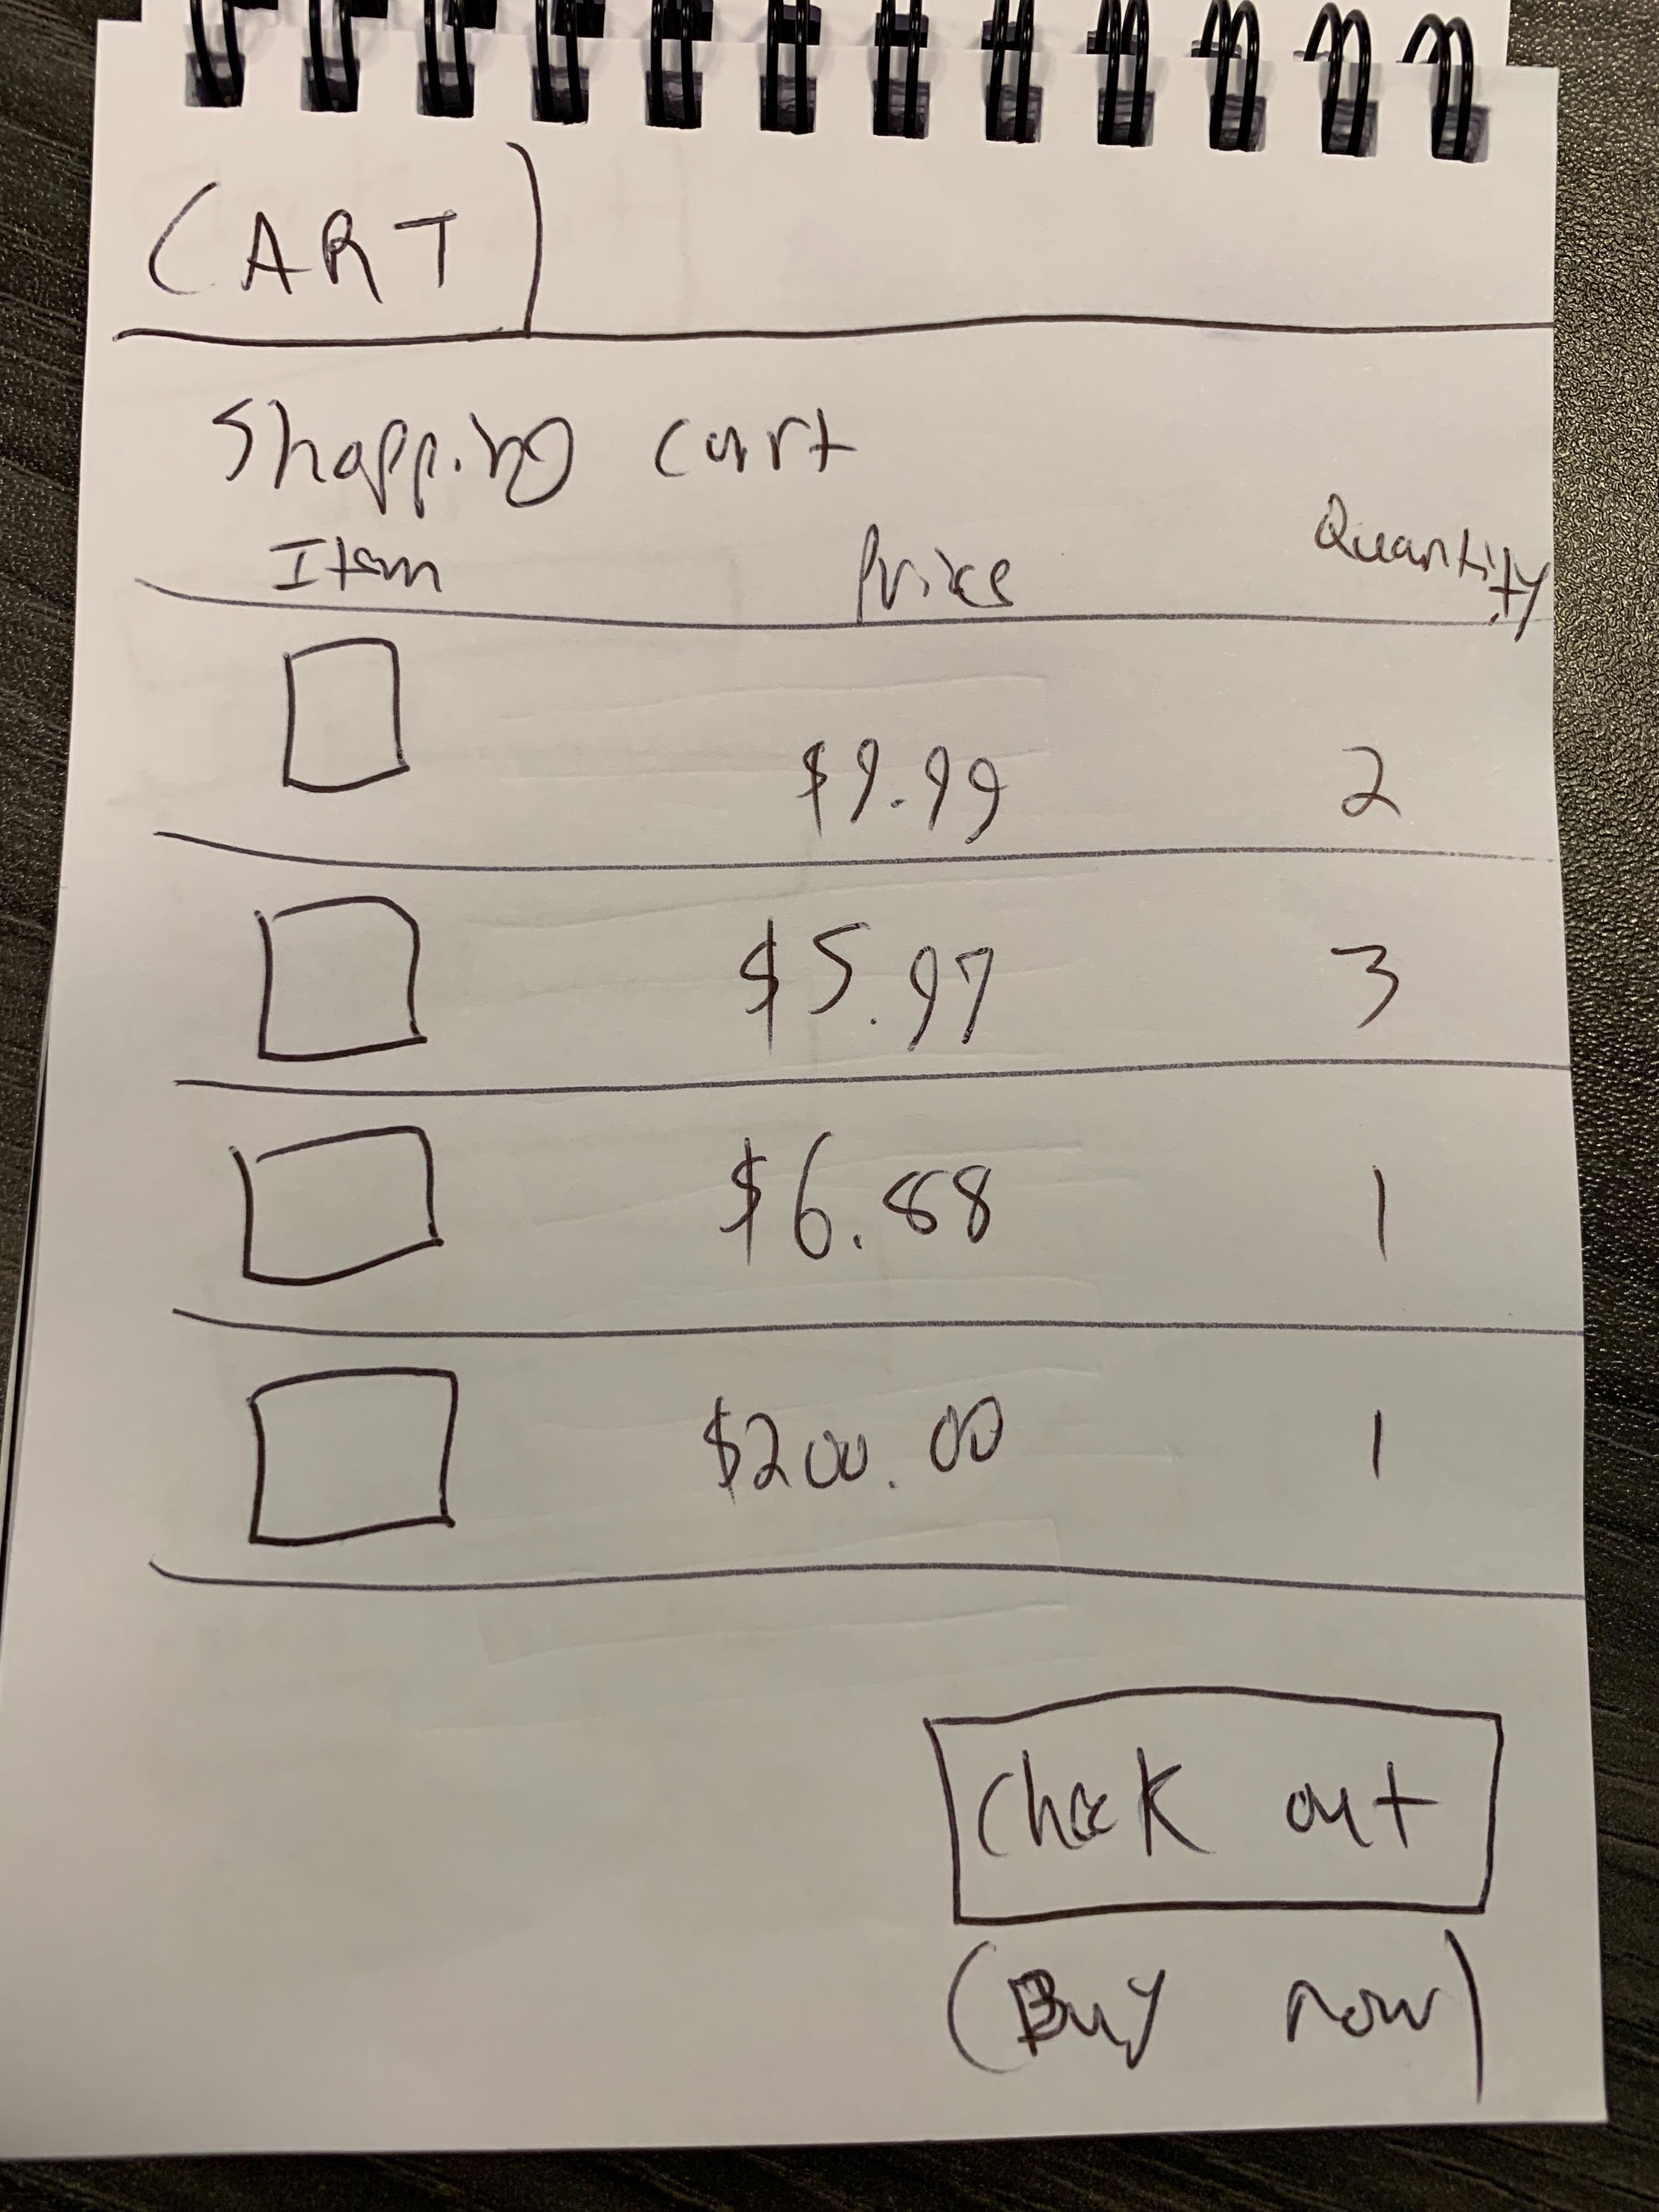 CART
Shopping cart
Item Price Quantity
$9.99 2
$5.97 3
$6.88 1
$200.00 1
Check out
(Buy now)